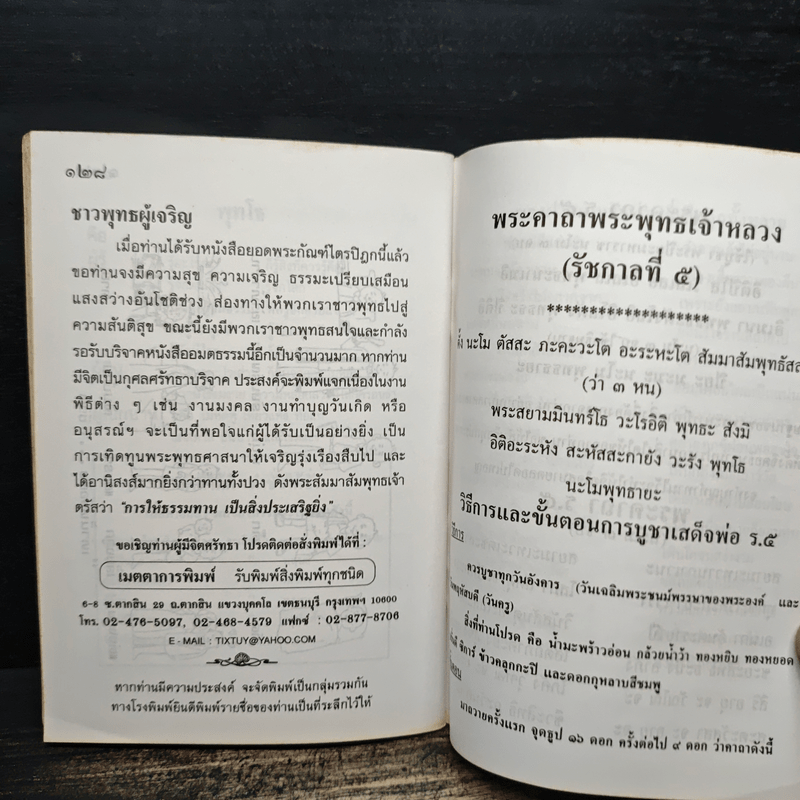 ๑๒๘
ชาวพุทธผู้เจริญ
เมื่อท่านได้รับหนังสือยอดพระกัณฑ์ไตรปิฎกนี้แล้ว
ขอท่านจงมีความสุข ความเจริญ ธรรมะเปรียบเสมือน
แสงสว่างอันโชติช่วง ส่องทางให้พวกเราชาวพุทธไปสู่
ความสันติสุข ขณะนี้ยังมีพวกเราชาวพุทธสนใจและกำลัง
รอรับบริจาคหนังสืออมตธรรมนี้อีกเป็นจำนวนมาก หากท่าน
มีจิตเป็นกุศลศรัทธาบริจาค ประสงค์จะพิมพ์แจกเนื่องในงาน
พิธีต่าง ๆ เช่น งานมงคล งานทำบุญวันเกิด หรือ
อนุสรณ์ฯ จะเป็นที่พอใจแก่ผู้ได้รับเป็นอย่างยิ่ง เป็น
การเทิดทูนพระพุทธศาสนาให้เจริญรุ่งเรืองสืบไป และ
ได้อานิสงส์มากยิ่งกว่าทานทั้งปวง ดังพระสัมมาสัมพุทธเจ้า
ตรัสว่า "การให้ธรรมทาน เป็นสิ่งประเสริฐยิ่ง"
ขอเชิญท่านผู้มีจิตศรัทธา โปรดติดต่อสั่งพิมพ์ได้ที่ :
เมตตาการพิมพ์ รับพิมพ์สิ่งพิมพ์ทุกชนิด
6-8 ซ.ตากสิน 29 ถ.ตากสิน แขวงบุคคโล เขตธนบุรี กรุงเทพฯ 10600
โทร. 02-476-5097, 02-468-4579 แฟกซ์ : 02-877-8706
E - MAIL : TIXTUY@YAHOO.COM
หากท่านมีความประสงค์ จะจัดพิมพ์เป็นกลุ่มรวมกัน
ทางโรงพิมพ์ยินดีพิมพ์รายชื่อของท่านเป็นที่ระลึกไว้ให้
พระคาถาพระพุทธเจ้าหลวง
(รัชกาลที่ ๕)
*******************
ตั้ง นะโม ตัสสะ ภะคะวะโต อะระหะโต สัมมาสัมพุทธัสส
(ว่า ๓ หน)
พระสยามมินทร์โธ วะโรอิติ พุทธะ สังมิ
อิติอะระหัง สะหัสสะกายัง วะรัง พุทโธ
นะโมพุทธายะ
วิธีการและขั้นตอนการบูชาเสด็จพ่อ ร.๕
ควรบูชาทุกวันอังคาร (วันเฉลิมพระชนม์พรรษาของพระองค์ และ
(วันครู)
สิ่งที่ท่านโปรด คือ น้ำมะพร้าวอ่อน กล้วยน้ำว้า ทองหยิบ ทองหยอด
ข้าวคลุกกะปิ และดอกกุหลาบสีชมพู
มาถวายครั้งแรก จุดธูป ๑๖ ดอก ครั้งต่อไป ๙ ดอก ว่าคาถาดังนี้